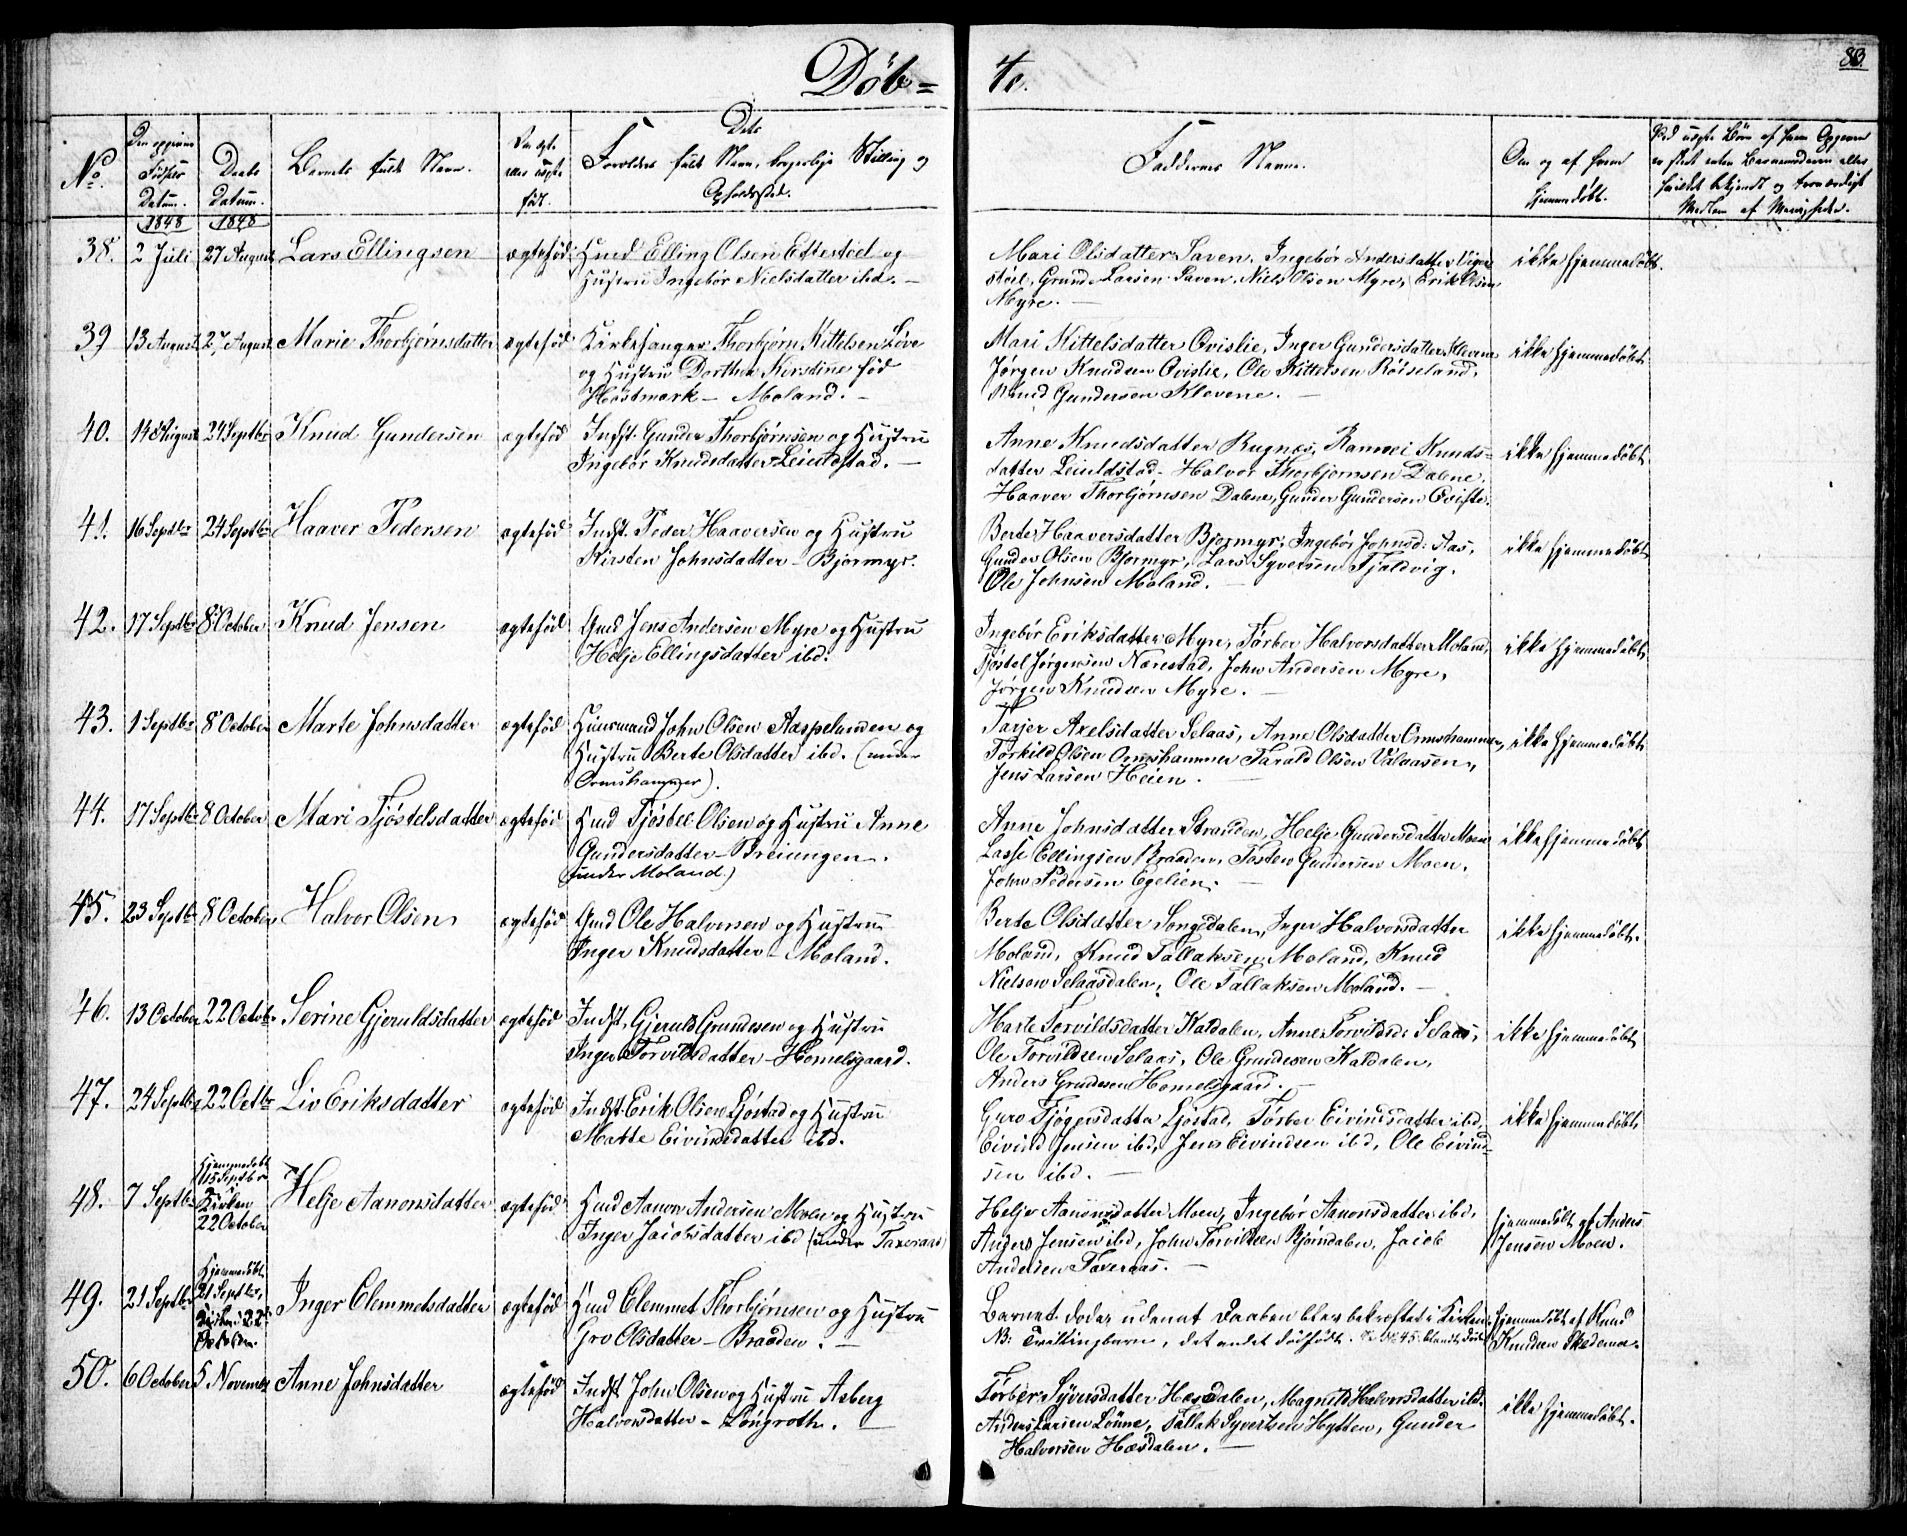 Döb= te.
83.
No.
Den opgivne Fødsels Datum.
Daabs Datum.
Barnets fulde Navn.
Om ægte eller uægte født.
Dets Forældres fulde Navn, borgerlige Stilling og Opholdssted.
Faddernes Navne.
Om og af hvem hjemmedøbt.
1848
1848
38. 2 Juli 27 August Lars Ellingsen ægtefød Gmd Elling Olsen Ettestøel og
Hustru Ingebør Nielsdatter ibd. —
Mari Olsdatter Saven, Ingebør Andersdatter Viger
støel, Grunde Larsen Saven, Niels Olsen Myre, Erik Olsen
Myre. —
ikke hjemmedøbt.
39 13 August 27 August Marie Thorbjørnsdatter ægtefød Kirkesanger Thorbjørn Kittelsen Löve
og Hustru Dorthea Kirstine fød
Høstmark — Moland. —
Mari Kittelsdatter Qvislie, Inger Gundersdatter Klevene
Jørgen Knudsen Qvislie, Ole Kittelsen Röiseland,
Knud Gundersen Klevene. —
ikke hjemmedøbt
40. 14 August 24 Septbr Knud Gundersen ægtefød Indst. Gunder Thorbjørnsen og Hustru
Ingebør Knudsdatter Leiuldstad. —
Anne Knudsdatter Rugnæs, Ranvei Knuds=
datter Leiuldstad — Halvor Thorbjørnsen Dalene,
Haaver Thorbjørnsen Dalene, Gunder Gundersen Qvifte.
ikke hjemmedøbt
41. 16 Septbr 24 Septbr Haaver Pedersen ægtefød Indst. Peder Haaversen og Hustru
Kirsten Johnsdatter — Bjormyr.
Berte Haaversdatter Bjormyr, Ingebør Johnsd: Aas,
Gunder Olsen Bjormyr, Lars Syversen Fjaldvig.
Ole Johnsen Moland. —
ikke hjemmedøbt
42. 17 Septbr 8 October Knud Jensen ægtefød Gmd Jens Andersen Myre og Hustru
Helje Ellingsdatter ibd.
Ingebör Eriksdatter Myre, Tørber Halvorsdatter Moland,
Tjöstel Jørgensen Nærestad, John Andersen Myre,
Jørgen Knudsen Myre. —
ikke hjemmedøbt
43. 1 Septbr 8 October Marte Johnsdatter ægtefød Huusmand John Olsen Aaspelunden og
Hustru Berte Olsdatter ibd. (under
Ormshammer).
Tarjer Axelsdatter Selaas, Anne Olsdatter Ormshammer,
Torkild Olsen Ormshammer Tarald Olsen Valaasen,
Jens Larsen Heien. —
ikke hjemmedøbt
44. 17 Septbr 8 October Mari Tjöstelsdatter ægtefød Hmd Tjöstel Olsen og Hustru Anne
Gundersdatter — Breiungen.
(under Moland.)
Anne Johnsdatter Stranden, Helje Gundersdatter Moen
Lasse Ellingsen Braaden, Tosten Gundersen Moen,
John Pedersen Egelien. —
ikke hjemmedøbt
45. 23 Septbr 8 October Halvor Olsen ægtefød Gmd Ole Halvorsen og Hustru
Inger Knudsdatter — Moland.
Berte Olsdatter Songedalen, Inger Halvorsdatter
Moland, Knud Tallaksen Moland, Knud
Nielsen Selaasdalen, Ole Tallaksen Moland. —
ikke hjemmedøbt.
46. 13 October 22 Octobr Serine Gjeruldsdatter ægtefød Indst. Gjeruld Grundesen og Hustru
Inger Torvildsdatter — Homelsgaard.
Marte Torvildsdatter Kaldalen, Anne Torvildsd: Selaas,
Ole Torvildsen Selaas, Ole Grundesen Kaldalen,
Anders Grundesen Homelsgaard. —
ikke hjemmedøbt
47. 24 Septbr 22 Octbr Liv Eriksdatter ægtefød Indst. Erik Olsen Ljöstad og Hustru
Matte Eivindsdatter ibd.
Guro Tjögersdatter Ljöstad, Tørber Eivindsdatter ibd,
Eivind Jensen ibd, Jens Eivindsen ibd, Ole Eivind=
sen ibd. —
ikke hjemmedøbt
48. 7 Septbr Hjemmedøbt
15 Septbr
i Kirken
22 October Helje Aanonsdatter ægtefød Hmd Aanon Andersen Moen og Hustru
Inger Jacobsdatter ibd (under Taxeraas)
Helje Aanonsdatter Moen, Ingebør Aanonsdatter ibd,
Anders Jensen ibd, John Torvildsen Bjørndalen, Jacob
Andersen Taxeraas. —
hjemmedøbt af Anders
Jensen Moen.
49. 21 Septbr Hjemmedøbt
21 Septbr,
i Kirken 22
October. Inger Clemmetsdatter ægtefød Hmd Clemmet Thorbjørnsen og Hustru
Gro Olsdatter — Braaden. —
Barnet døde, uden at Daaben blev bekræftet i Kirken,
NB: Tvillingbarn, det andet dødfødt.
hjemmedøbt af Knud
Knudsen Skedemoe.
50. 6 October 5 November Anne Johnsdatter ægtefød Indst John Olsen og Hustru Asberg
Halvorsdatter — Longroth. —
Tørber Syversdatter Hæsdalen, Magnild Halvorsdatter ibd.
Anders Larsen Lönne, Tallak Syvertsen Hytten, Gunder
Halversen Hæsdalen. —
ikke hjemmedøbt.